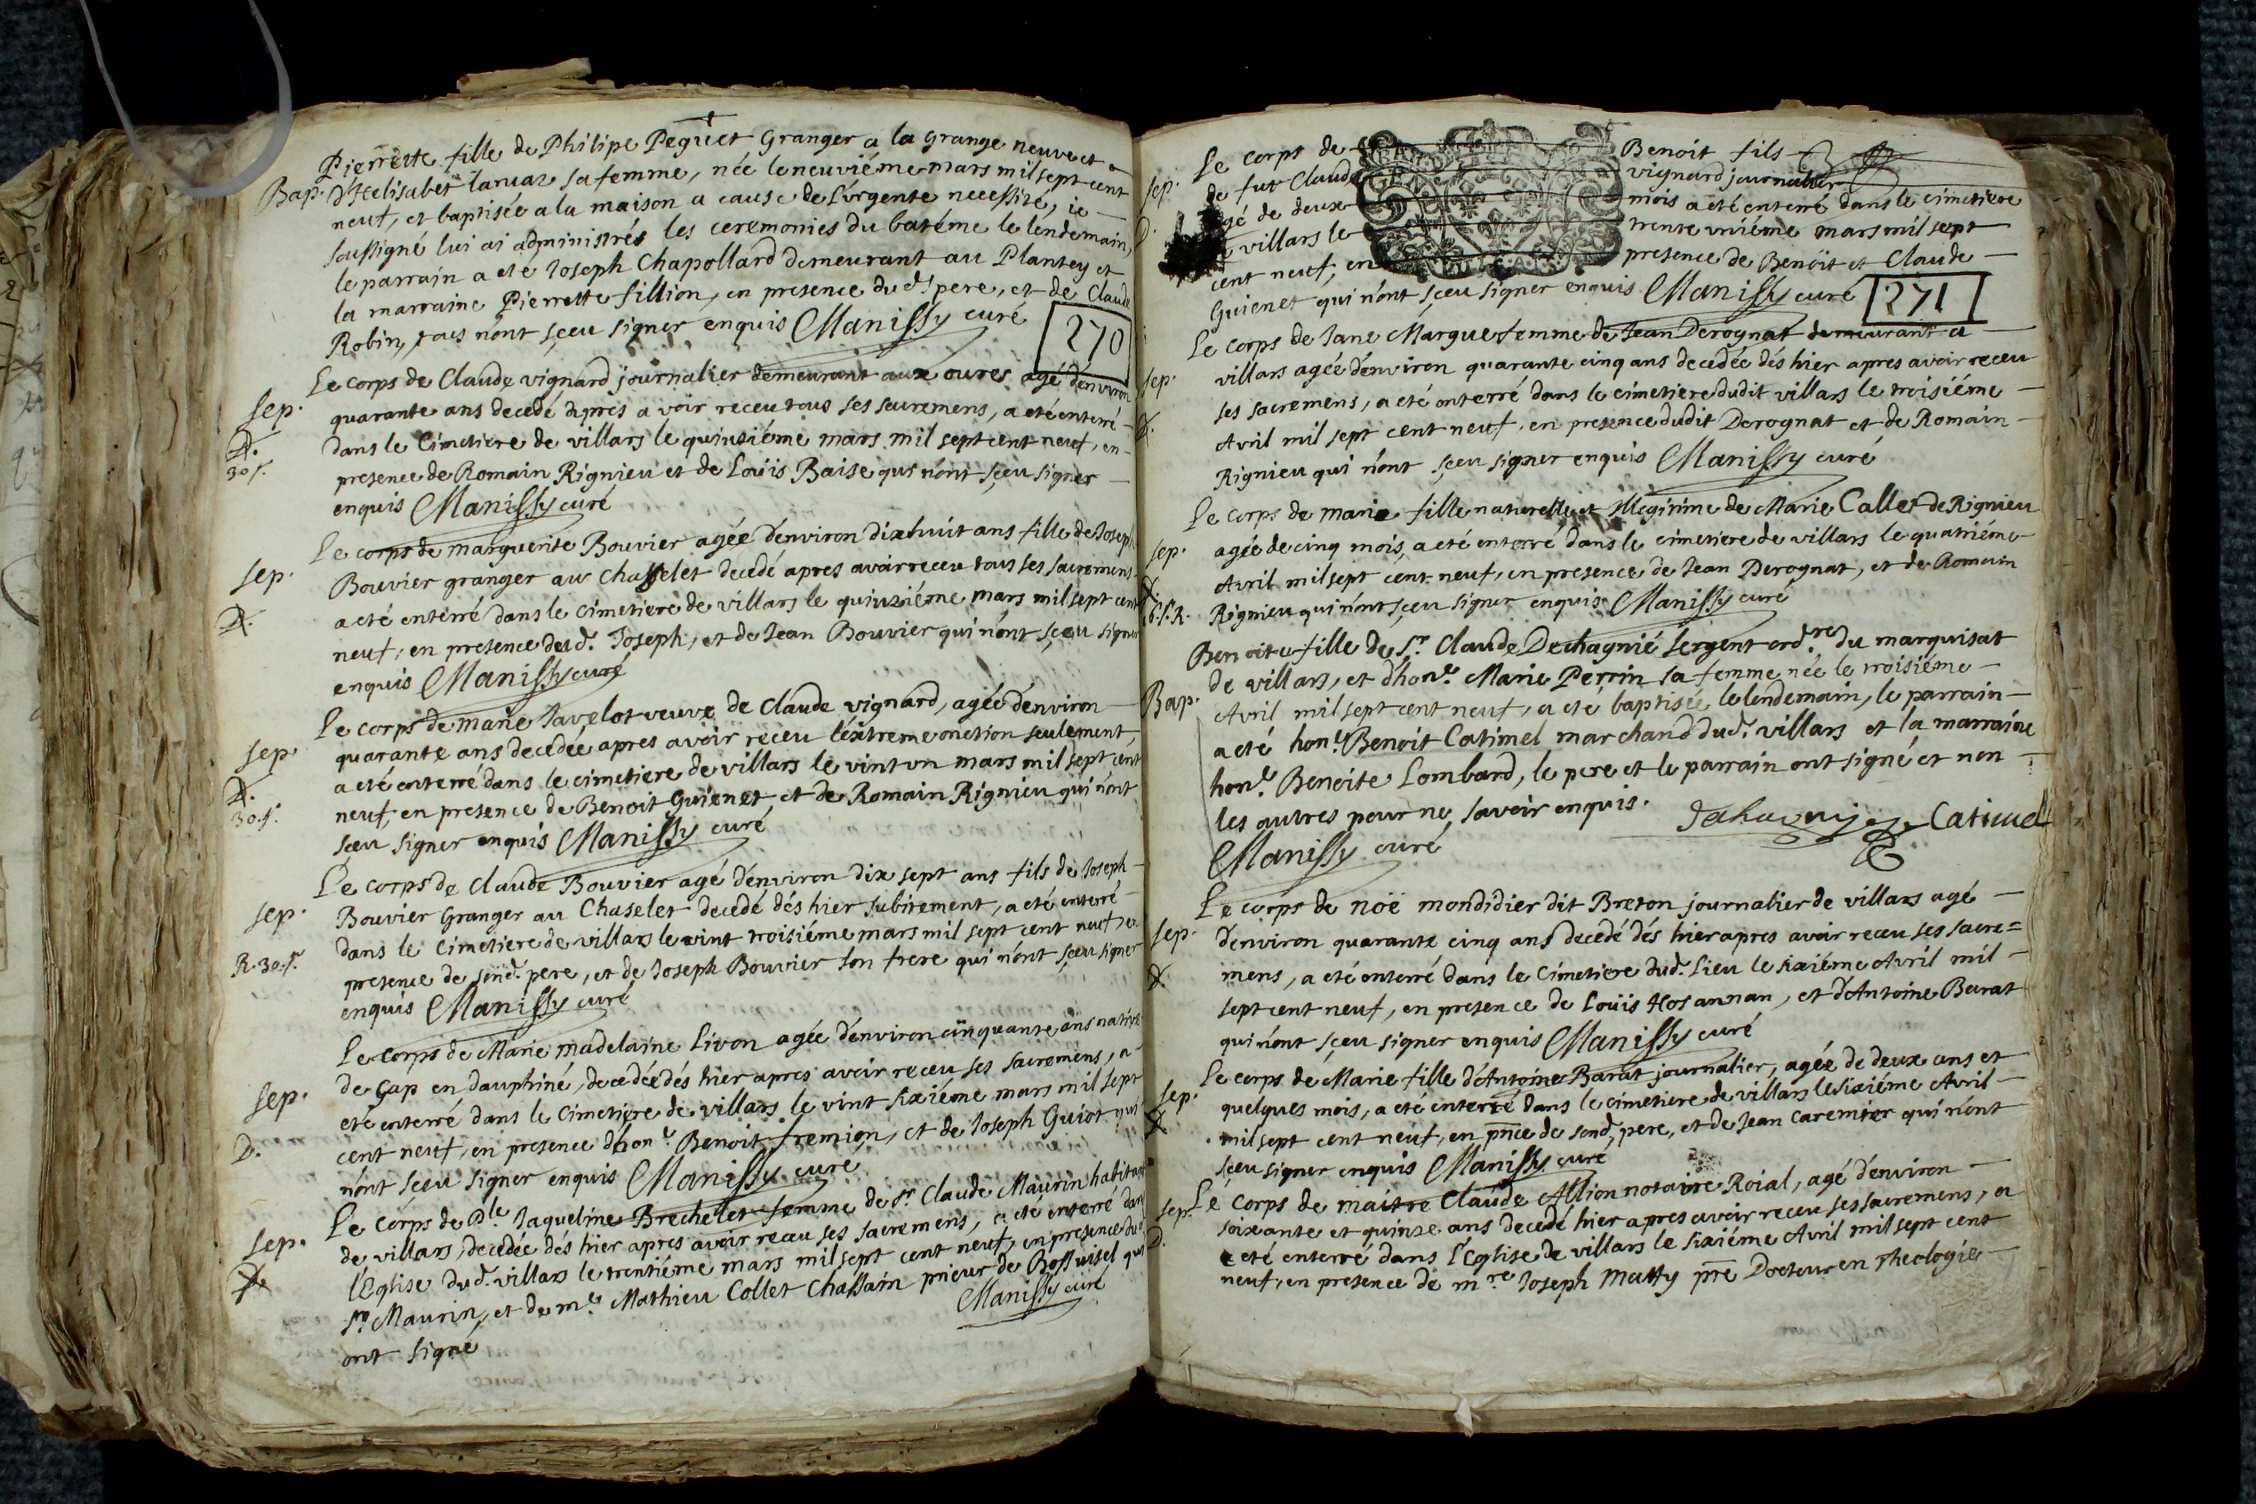 Pierrette fille de Philipe Peguet Granger a la grange neuve et
Bap. d'helisabet Ianuaz sa femme, née le neuviéme mars mil sept cent
neuf, et baptisée a la maison a cause de l'vrgente necessité, ie
soussigné lui ai administrés les ceremonies du batéme le lendemain,
le parrain a eté Ioseph Chapollard demeurant au Plantey et
la marraine Pierrette fillion, en presence du d. pere, et de Claude
Robin, tous n'ont sçeu signer enquis Manissy curé
270
Le corps de Claude vignard journalier demeurant aux oures agé d'environ
Sep. quarante ans decedé apres avoir receu tous ses sacremens, a eté enterré
D. dans le Cimetiere de villars le quinziéme mars mil sept cent neuf, en
30 s. presence de Romain Rignieu et de Loüis Baise qui n'ont sçeu signer
enquis Manissy curé
Le corps de marguerite Bouvier agée d'environ dixhuit ans fille de Joseph
Sep. Bouvier granger au Chasselet decedé apres avoir receu tous ses sacremens
D. a eté enterré dans le cimetiere de villars le quinziéme mars mil sept cent
neuf, en presence dud. Joseph, et de Jean Bouvier qui n'ont sçeu signer
enquis Manissy curé
Le corps de marie Javelot veuve de Claude vignard, agée d'environ
Sep. quarante ans decedée apres avoir receu l'extreme onction seulement,
D. a eté enterré dans le cimetiere de villars le vint vn mars mil sept cent
30.s. neuf, en presence de Benoit Guienet, et de Romain Rignieu qui n'ont
sceu signer enquis Manissy curé
Le corps de Claude Bouvier agé d'environ dix sept ans fils de Joseph
Sep. Bouvier Granger au Chaselet decedé dés hier subitement, a eté enterré
dans le Cimetiere de villars le vint troisiéme mars mil sept cent neuf, en
R. 30.s. presence de sond. pere, et de Joseph Bouvier son frere qui n'ont sçeu signer
enquis Manissy curé
Le corps de Marie madelaine Livon agée d'environ cinquante ans native
Sep. de Gap en dauphiné, decedée dés hier apres avoir receu ses sacremens, a
eté enterré dans le Cimetiere de villars le vint sixiéme mars mil sept
D. cent neuf, en presence d'hon. Benoit fremion, et de Joseph Guiot qui
n'ont sceu signer enquis Manissy curé
Le corps de Dle Jaqueline Brechelet femme de Sr Claude Maurin habitant
Sep. de villars, decedée dés hier apres avoir receu ses sacremens, a eté enterré dans
D. l'Eglise dud. villars le trentiéme mars mil sept cent neuf, en presence dud.
Sr Maurin, et de me Mathieu Collet Chassain prieur de qui
ont signé Manissy curé
Le corps de Benoit fils
Sep. de fut Claude vignard journalier
agé de deux mois a eté enterré dans le cimetiere
villars le trente vniéme mars mil sept
cent neuf, en presence de Benoit et Claude
Guienet qui n'ont sçeu signer enquis Manissy curé
271
Le corps de Jane Margue femme de Jean Derognat demeurant a
Sep. villars agée d'environ quarante cinq ans decedée dés hier apres avoir receu
ses sacremens, a eté enterré dans le cimetiere dudit villars le troisiéme
D. Avril mil sept cent neuf, en presence dudit Derognat et de Romain
Rignieu qui n'ont sçeu signer enquis Manissy curé
Le corps de marie fille naturelle et illegitime de Marie Caller de Rignieu
Sep. agée de cinq mois, a eté enterré dans le cimetiere de villars le quatriéme
Avril mil sept cent neuf, en presence de Jean Derognat, et de Romain
Rignieu qui n'ont sçeu signer enquis Manissy curé
Benoite fille de Sr Claude Dechagnié Sergent ordre du marquisat
de villars, et d'hon. Marie Perrin sa femme née le troisiéme
Bap. Avril mil sept cent neuf, a eté baptisée le lendemain, le parrain
a eté hon. Benoit Catimel marchand dud. villars et la marraine
hon. Benoite Lombard, le pere et le parrain ont signé et non
les autres pour ne savoir enquis. Catimel
Manissy curé
Le corps de noë mondidier dit Breton journalier de villars agé
Sep. d'environ quarante cinq ans decedé dés hier apres avoir receu ses sacre=
mens, a eté enterré dans le Cimetiere dud. lieu le sixiéme Avril mil
sept cent neuf, en presence de Loüis Hosannan, et d'Antoine Barat
qui n'ont sçeu signer enquis Manissy curé
Le corps de Marie fille d'Antoine Barat journalier, agée de deux ans et
Sep. quelques mois, a eté enterré dans le cimetiere de villars le sixiéme Avril
mil sept cent neuf, en pnce de sond. pere, et de Jean Caremier qui n'ont
sçeu signer enquis Manissy curé
Sep. Le corps de maitre Claude Allion notaire Roial, agé d'environ
soixante et quinze ans decedé hier apres avoir receu ses sacremens, a
D. eté enterré dans l'Eglise de villars le sixiéme Avril mil sept cent
neuf, en presence de mre Joseph Matty pre Docteur en Theologie